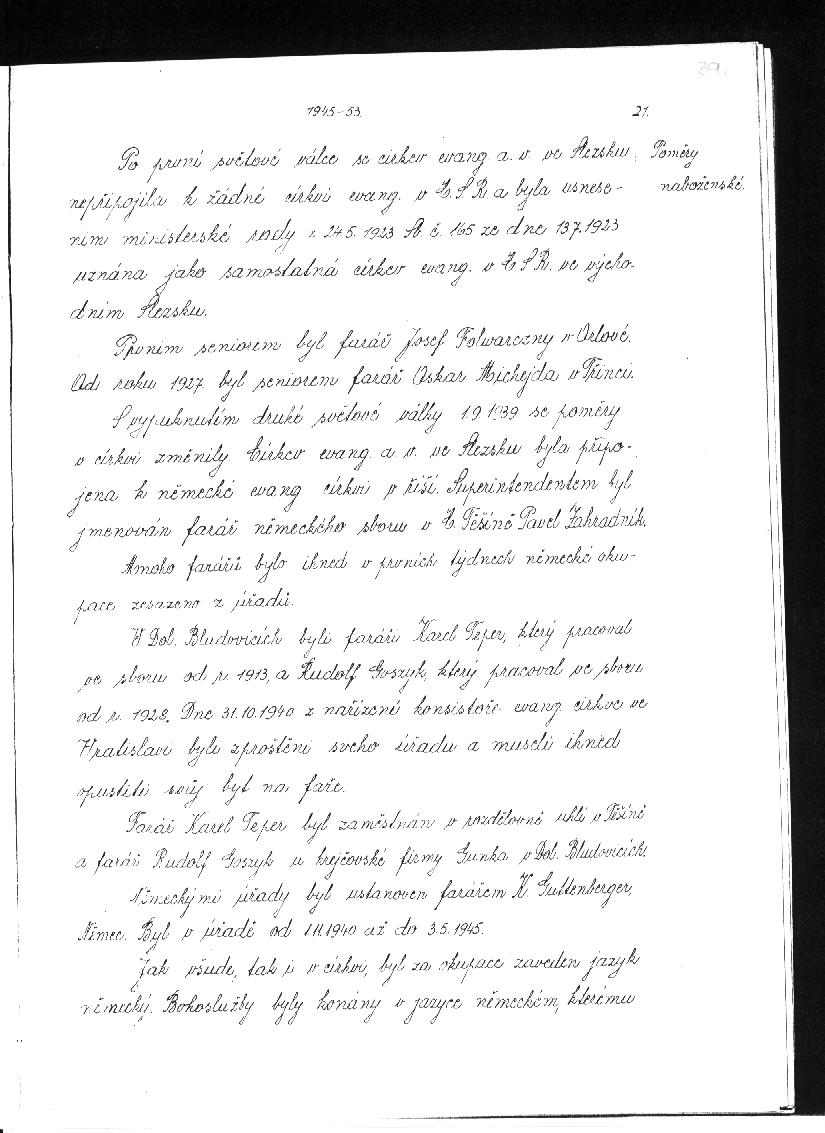 39.
1945-53. 21.
Po první světové válce se církev evang a. v. ve Slezsku, Poměry
nepřipojila k žádné církvi evang. v Č. S. R. a byla usnese- naboženské.
ním ministerské rady z 24.5. 1923 Sb. č. 165 ze dne 13.7. 1923
uznána jako samostatná církev evang. v Č S R. ve výcho-
dním Slezsku.
Prvním seniorem byl farář Josef Folwarczny v Orlové.
Od roku 1927 byl seniorem farář Oskar Michejda v Třinci.
S vypuknutím druhé světové války 1.9.1939 se poměry
v církvi změnily. Církev evang. a v. ve Slezsku byla připo-
jena k německé evang církvi v říši. Superintendentem byl
jmenován farář německého sboru v Č. Těšíně Pavel Zahradník.
Mnoho farářů bylo ihned v prvních týdnech německé oku-
pace sesazeno z úřadů.
V Dol. Bludovicích byli faráři Karel Teper, který pracoval
ve sboru od r. 1913, a Rudolf Goszyk, který pracoval ve sboru
od r. 1928. Dne 31.10.1940 z nařízení konsistoře evang církve ve
Vratislavi byli zproštěni sveho úřadu a museli ihned
opustiti svůj byt na faře.
Farář Karel Teper byl zaměstnán v rozdělovně uhlí v Těšíně
a farář Rudolf Goszyk u krejčovské firmy Gunka v Dol. Bludovicích.
Německými úřady byl ustanoven farářem K. Guttenberger,
Němec. Byl v úřadě od 1.11.1940 až do 3.5.1945.
Jak všude, tak i v církvi, byl za okupace zaveden jazyk
německý. Bohoslužby byly konány v jazyce německém, kterému